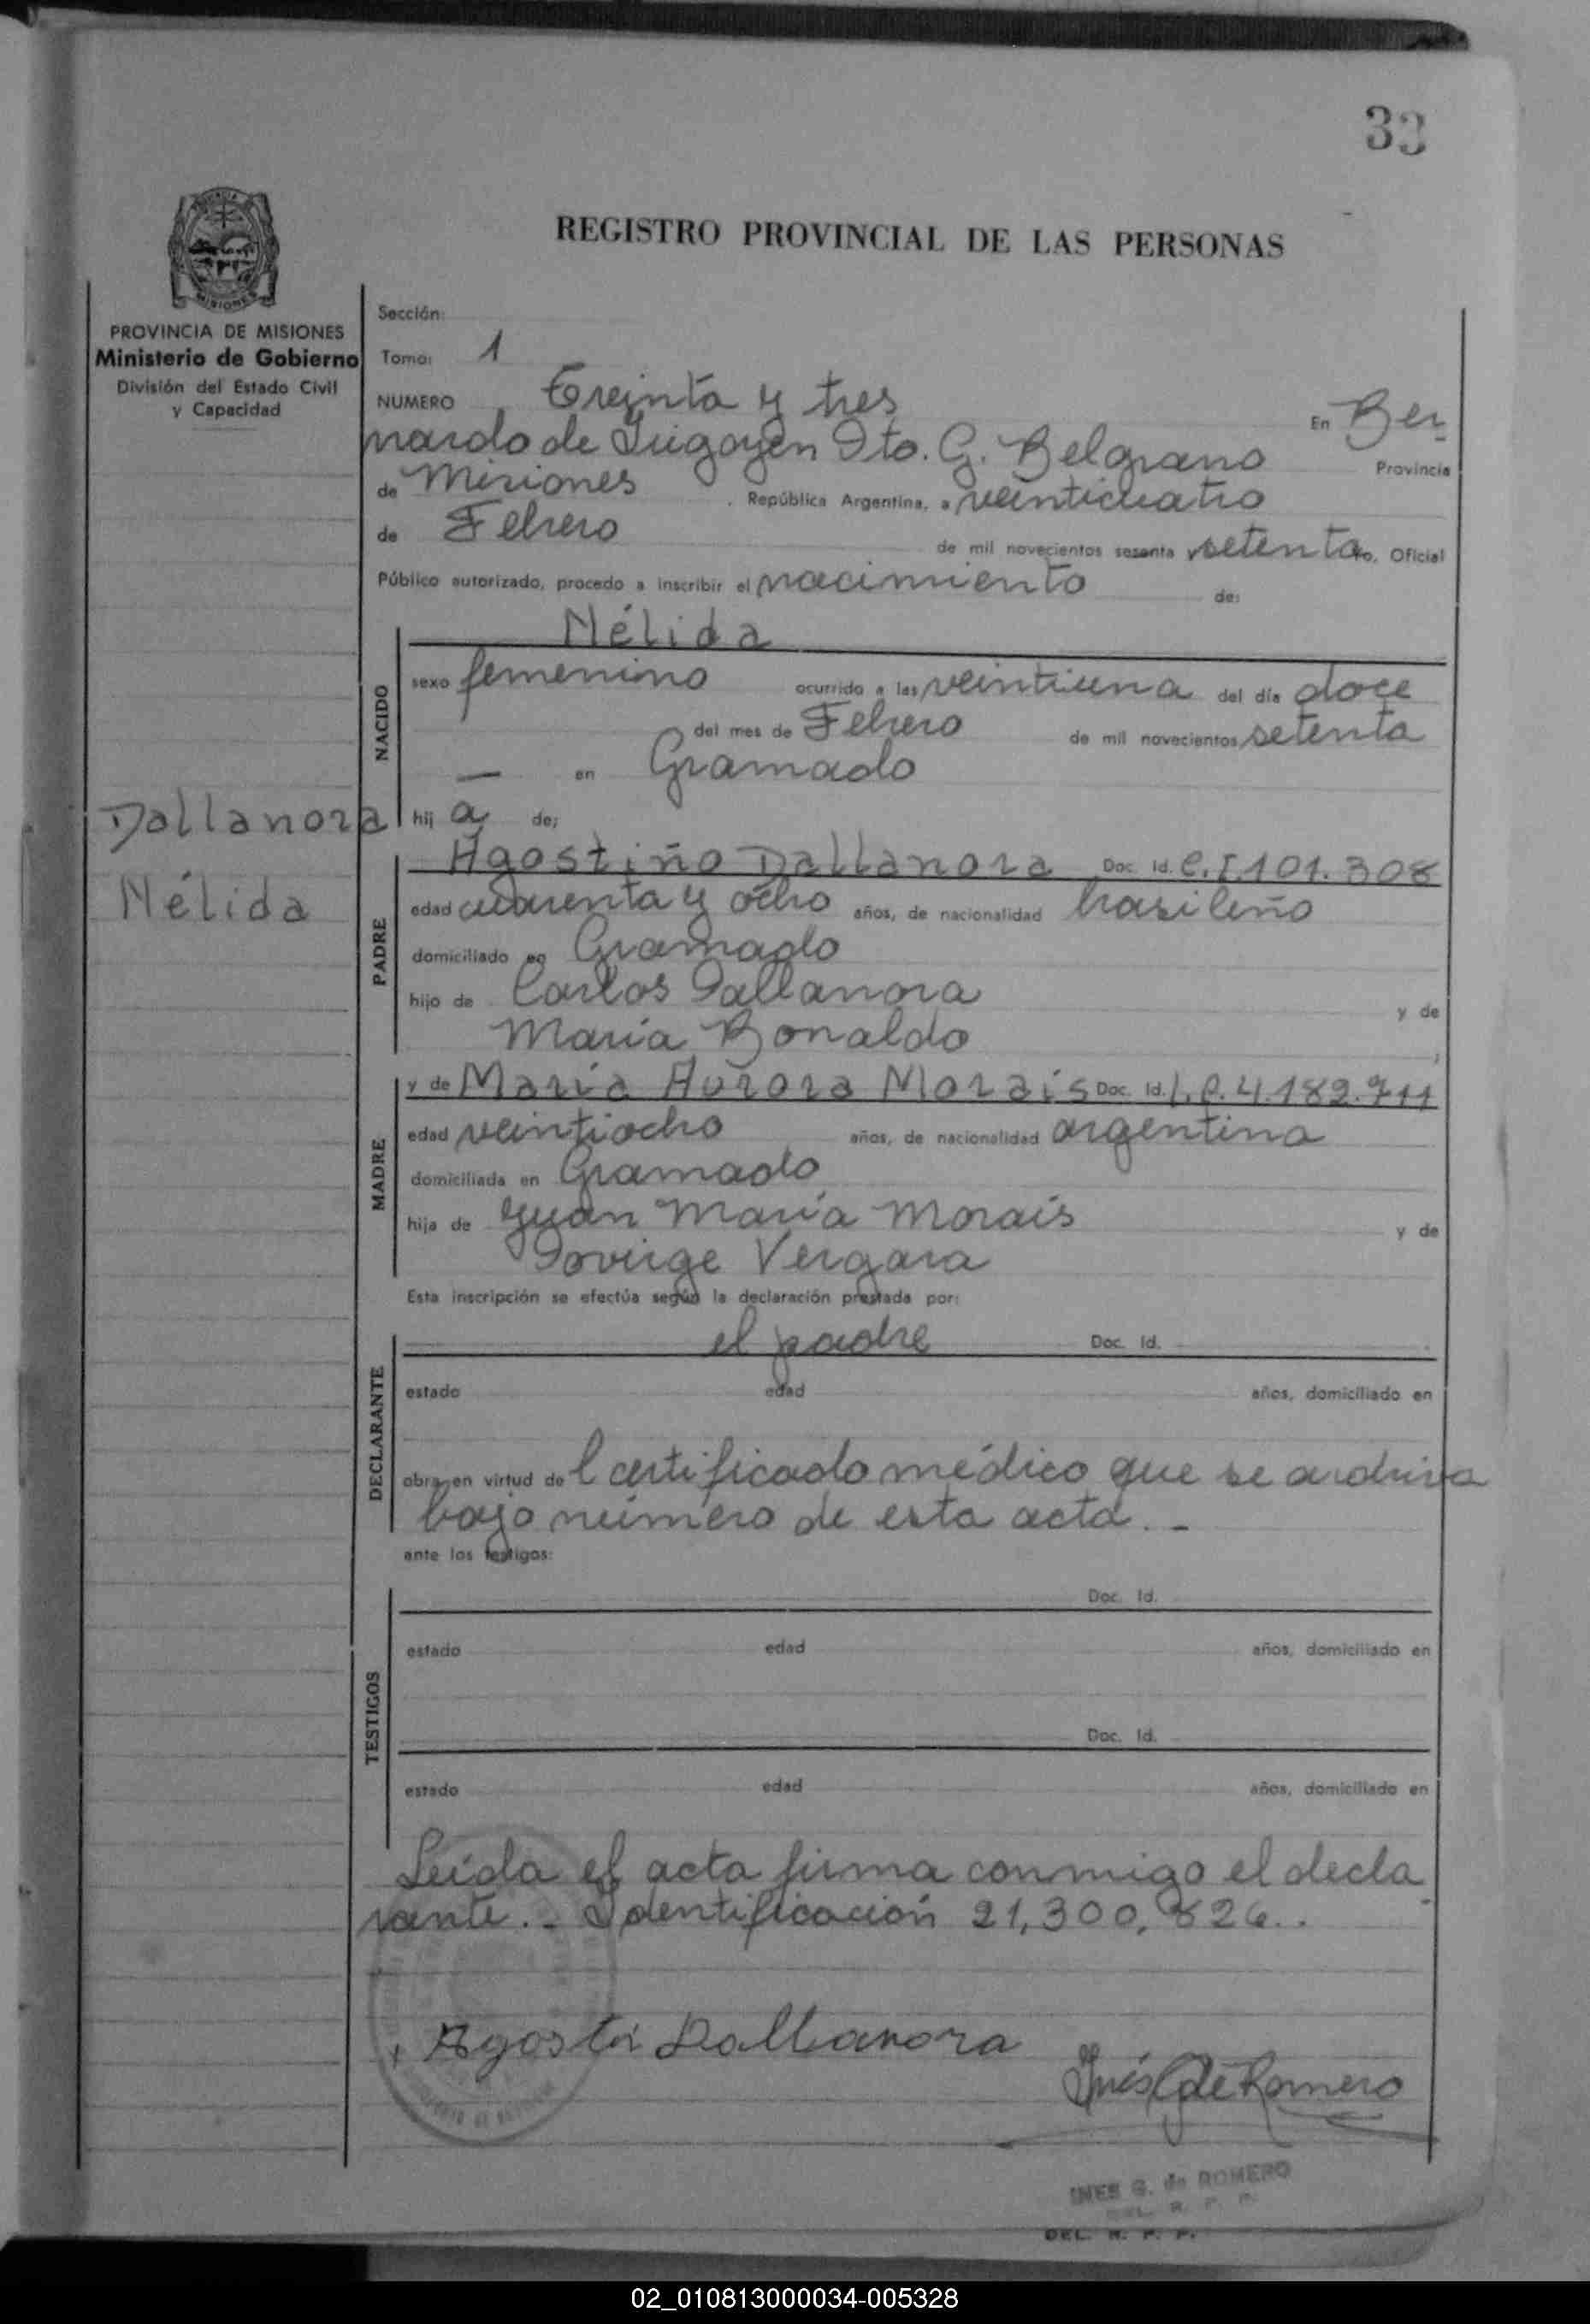 33
REGISTRO PROVINCIAL DE LAS PERSONAS
PROVINCIA DE MISIONES
Ministerio de Gobierno
División del Estado Civil
y Capacidad
Sección:
Tomo: 1
NUMERO Treinta y tres En Ber
nardo de Irigoyen Dto. G. Belgrano Provincia
de Misiones República Argentina, a veinticuatro
de Febrero de mil novecientos sesenta y setenta Oficial
Público autorizado, procedo a inscribir el nacimiento de:
NACIDO
Nélida
sexo femenino ocurrido a las veintiuna del día doce
del mes de Febrero de mil novecientos setenta
— en Gramado
hij a de;
Dallanora
Nélida
PADRE
Agostiño Dallanora Doc. Id. C.I.101.308
edad cuarenta y ocho años, de nacionalidad brasileño
domiciliado en Gramado
hijo de Carlos Dallanora y de
María Bonaldo
MADRE
y de María Aurora Morais Doc. Id. L.C.4.182.711
edad veintiocho años, de nacionalidad argentina
domiciliada en Gramado
hija de Juan María Morais y de
Vergara
Esta inscripción se efectúa según la declaración prestada por:
DECLARANTE
el padre Doc. Id.
estado edad años, domiciliado en
obra en virtud de l certificado médico que se archiva
bajo número de esta acta. -
ante los testigos:
TESTIGOS
Doc. Id.
estado edad años, domiciliado en
Doc. Id.
estado edad años, domiciliado en
Leída el acta firma conmigo el decla
rante. - Identificación 21,300,826..
Dallanora
Inés G de Romero
INES G. de ROMERO
DEL. R. P. P.
DEL. R. P. P.
02_010813000034-005328